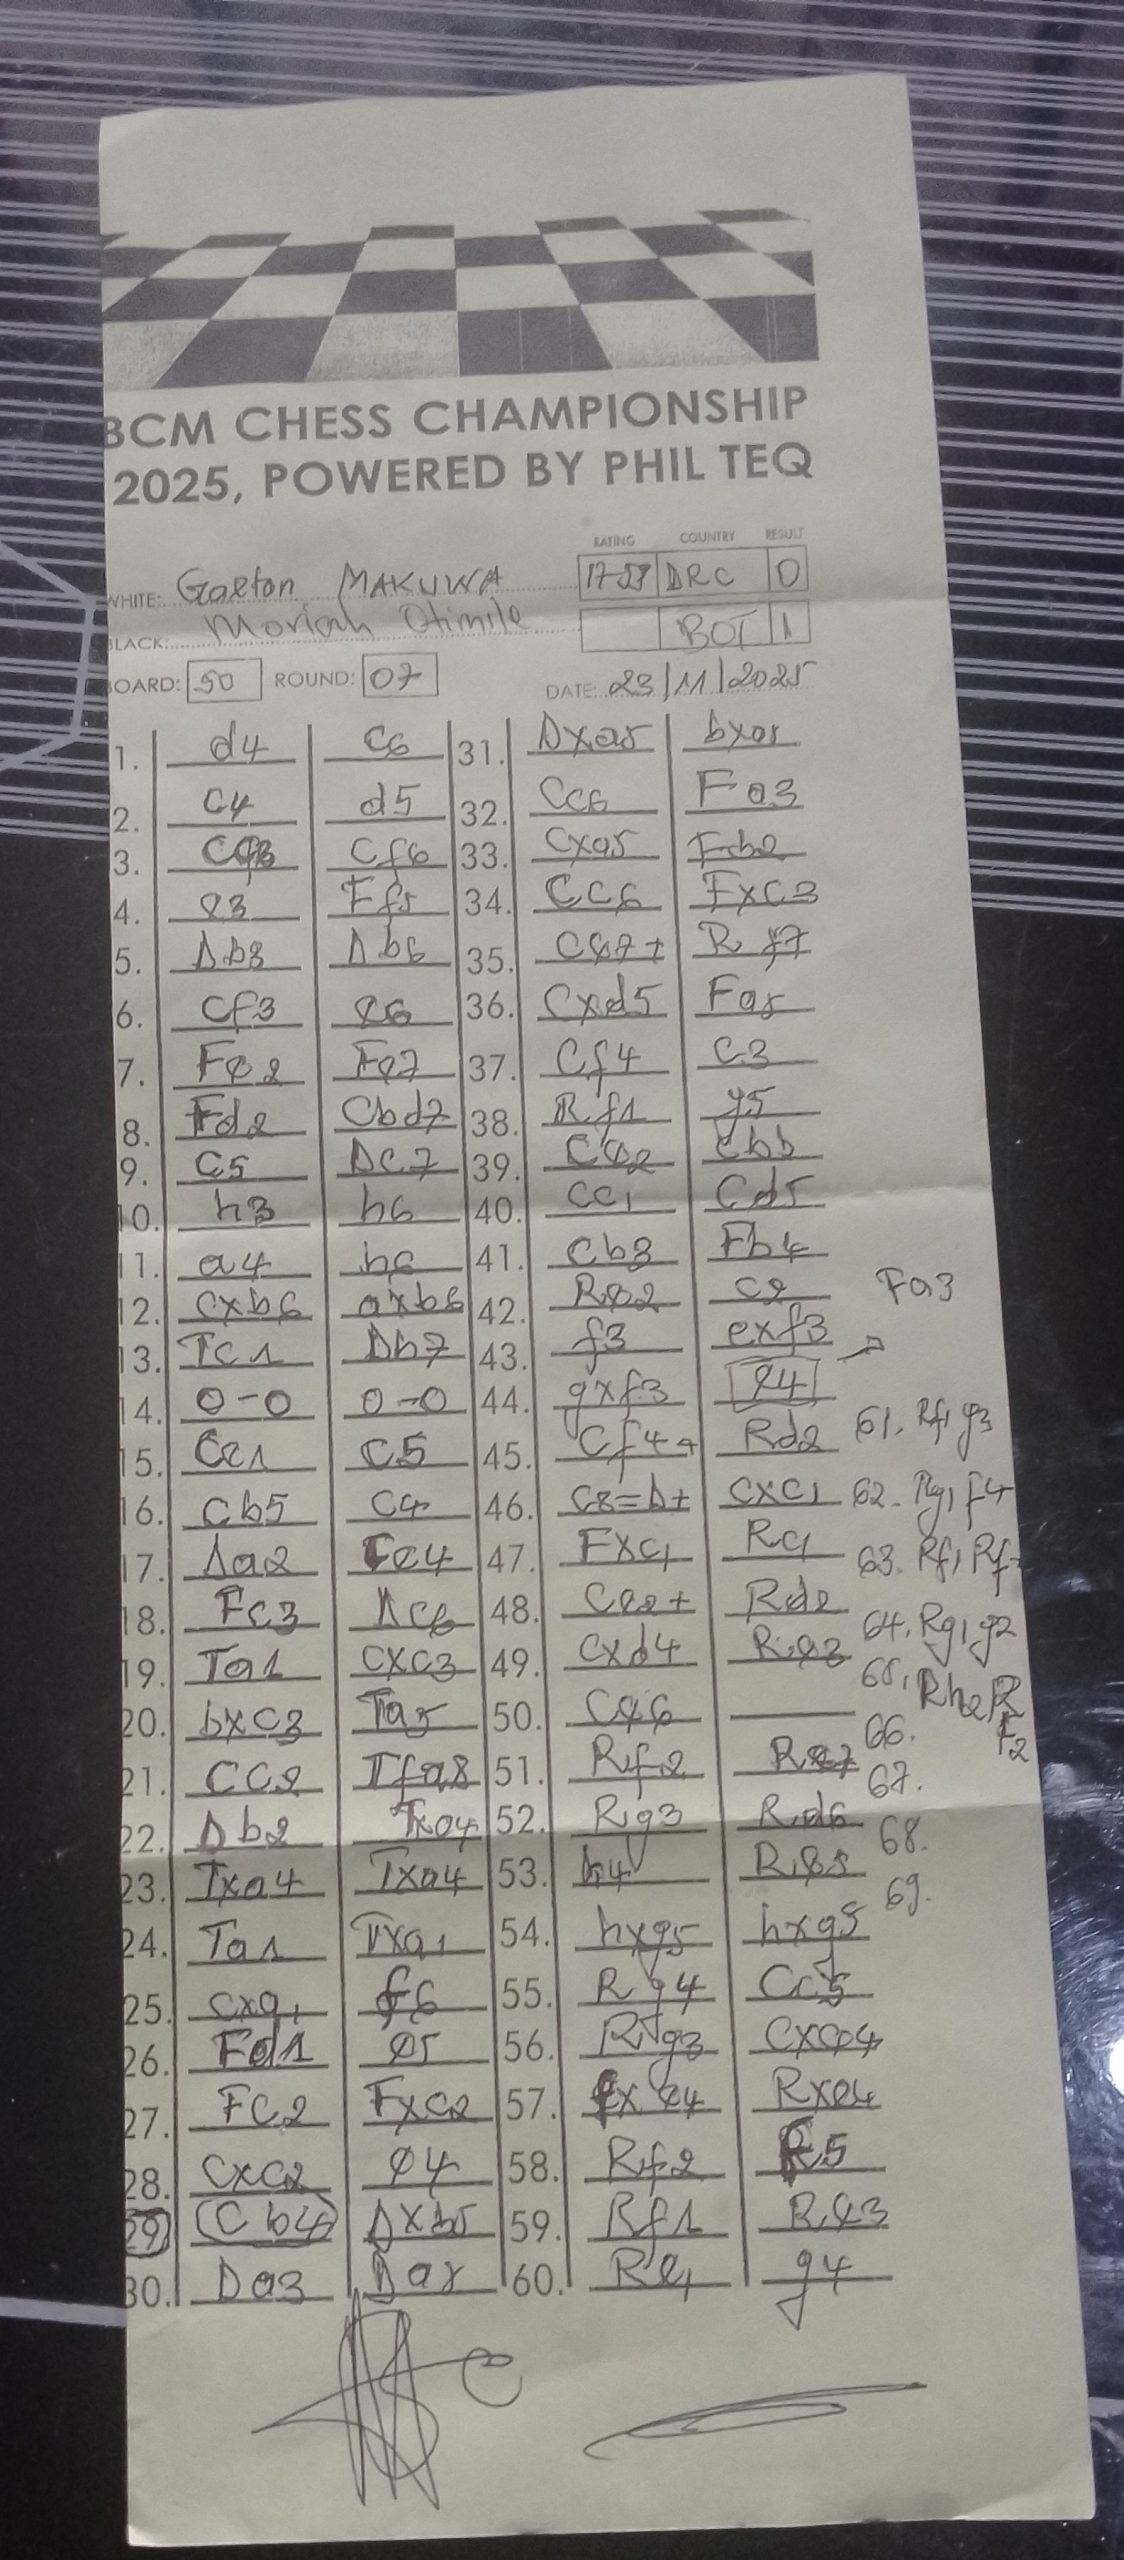 BCM CHESS CHAMPIONSHIP
2025, POWERED BY PHIL TEQ
RATING COUNTRY RESULT
WHITE: Gaeton MAKUWA DRC 0
BLACK: Moriah Otimile BOT 1
BOARD: 50 ROUND: 07 DATE: 23/11/2025
1. d4 c6 31. Dxa5 bxa5
2. c4 d5 32. Cc6 Fa3
3. Cf6 33. Cxa5 Fb2
4. e3 Ff5 34. Cc6 Fxc3
5. Db3 Db6 35. Ce7+ Rf7
6. Cf3 e6 36. Cxd5 Fa5
7. Fe2 Fe7 37. Cf4 c3
8. Fd2 Cbd7 38. Rf1 g5
9. c5 Dc7 39. Ce2 Cbb
10. h3 h6 40. Cc1 Cd5
11. a4 b6 41. Cb3 Fb4
12. cxb6 axb6 42. Re2 c2 Fa3
13. Tc1 Db7 43. f3 exf3
14. 0-0 0-0 44. gxf3 e4
15. Ce1 c5 45. Cf4+ Rd2 61. Rf1 g3
16. Cb5 c4 46. c8=D+ cxc1 62. Rg1 f4
17. Da2 Ce4 47. Fxc1 Rc1 63. Rf1 Rf
18. Fc3 Dc6 48. Ce2+ Rd2 64. Rg1 g2
19. Ta1 cxc3 49. cxd4 Re3 65. Rh2 R
20. bxc3 Ta5 50. Ce6 f2
21. Cc2 Tfa8 51. Rf2 Re7 66.
22. Db2 Txa4 52. Rg3 Rd6 67.
23. Txa4 Txa4 53. h4 Re5 68.
24. Ta1 Txa1 54. hxg5 hxg5 69.
25. cxa1 f6 55. Rg4 Cc5
26. Fd1 e5 56. Rg3 Cxe4
27. Fc2 Fxc2 57. fxe4 Rxe4
28. Cxc2 e4 58. Rf2 f5
29. (Cb4) Dxb5 59. Rf1 Re3
30. Da3 Da5 60. Re1 g4